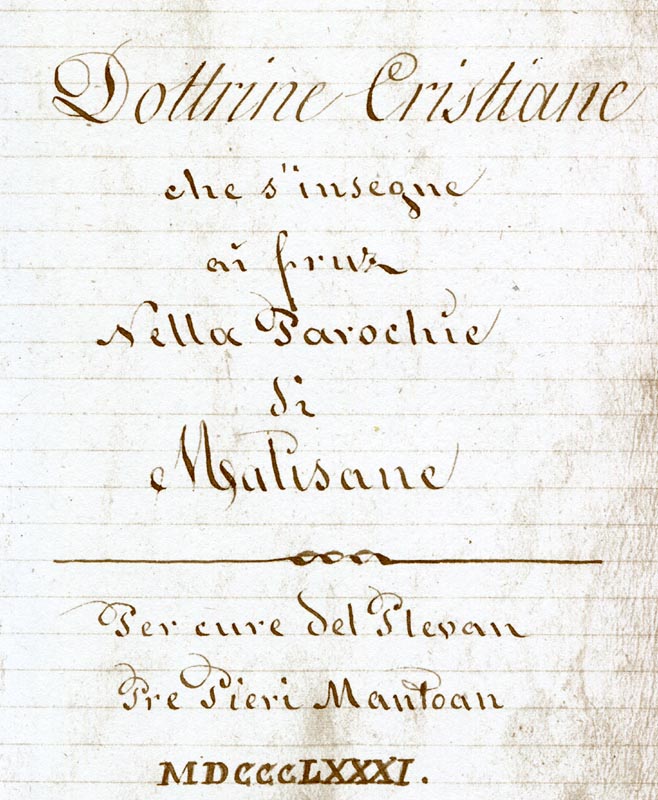 Dottrine Cristiane
che s'insegne
ai fruz
Nella Parochie
di
Malisane
Per cure del Plevan
Pre Pieri Mantoan
MDCCCLXXXI.